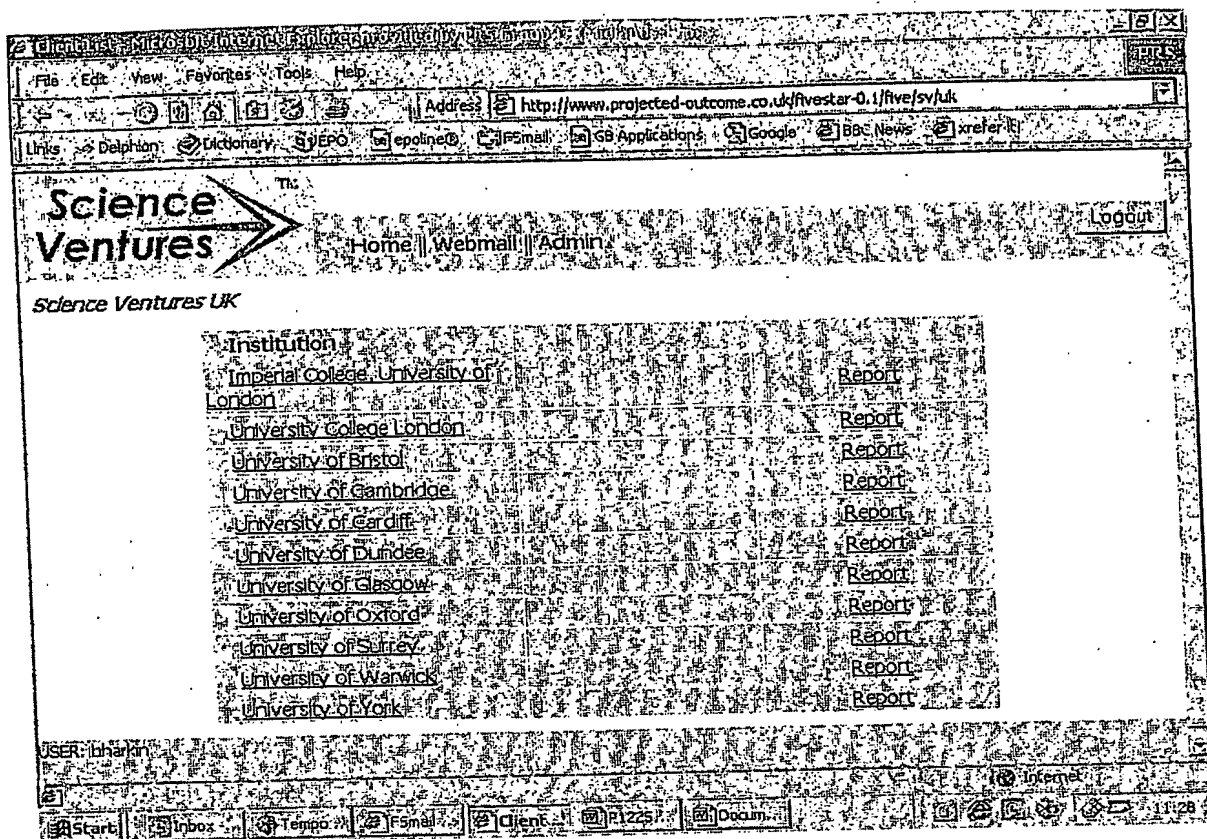 Client List - Microsoft Internet Explorer provided by
File Edit View Favorites Tools Help
Address http://www.projected-outcome.co.uk/fivestar-0.1/five/sv/uk
Links Delphion Dictionary EPO epoline® F5mail GB Applications Google BBC News xrefer it!
Science Ventures TM
Home || Webmail || Admin
Logout
Science Ventures UK
Institution
Imperial College, University of London Report
University College London Report
University of Bristol Report
University of Cambridge Report
University of Cardiff Report
University of Dundee Report
University of Glasgow Report
University of Oxford Report
University of Surrey Report
University of Warwick Report
University of York Report
USER: bharkin
Internet
Start Inbox Tempo F5mail Client... P1225 Docum... 11:28